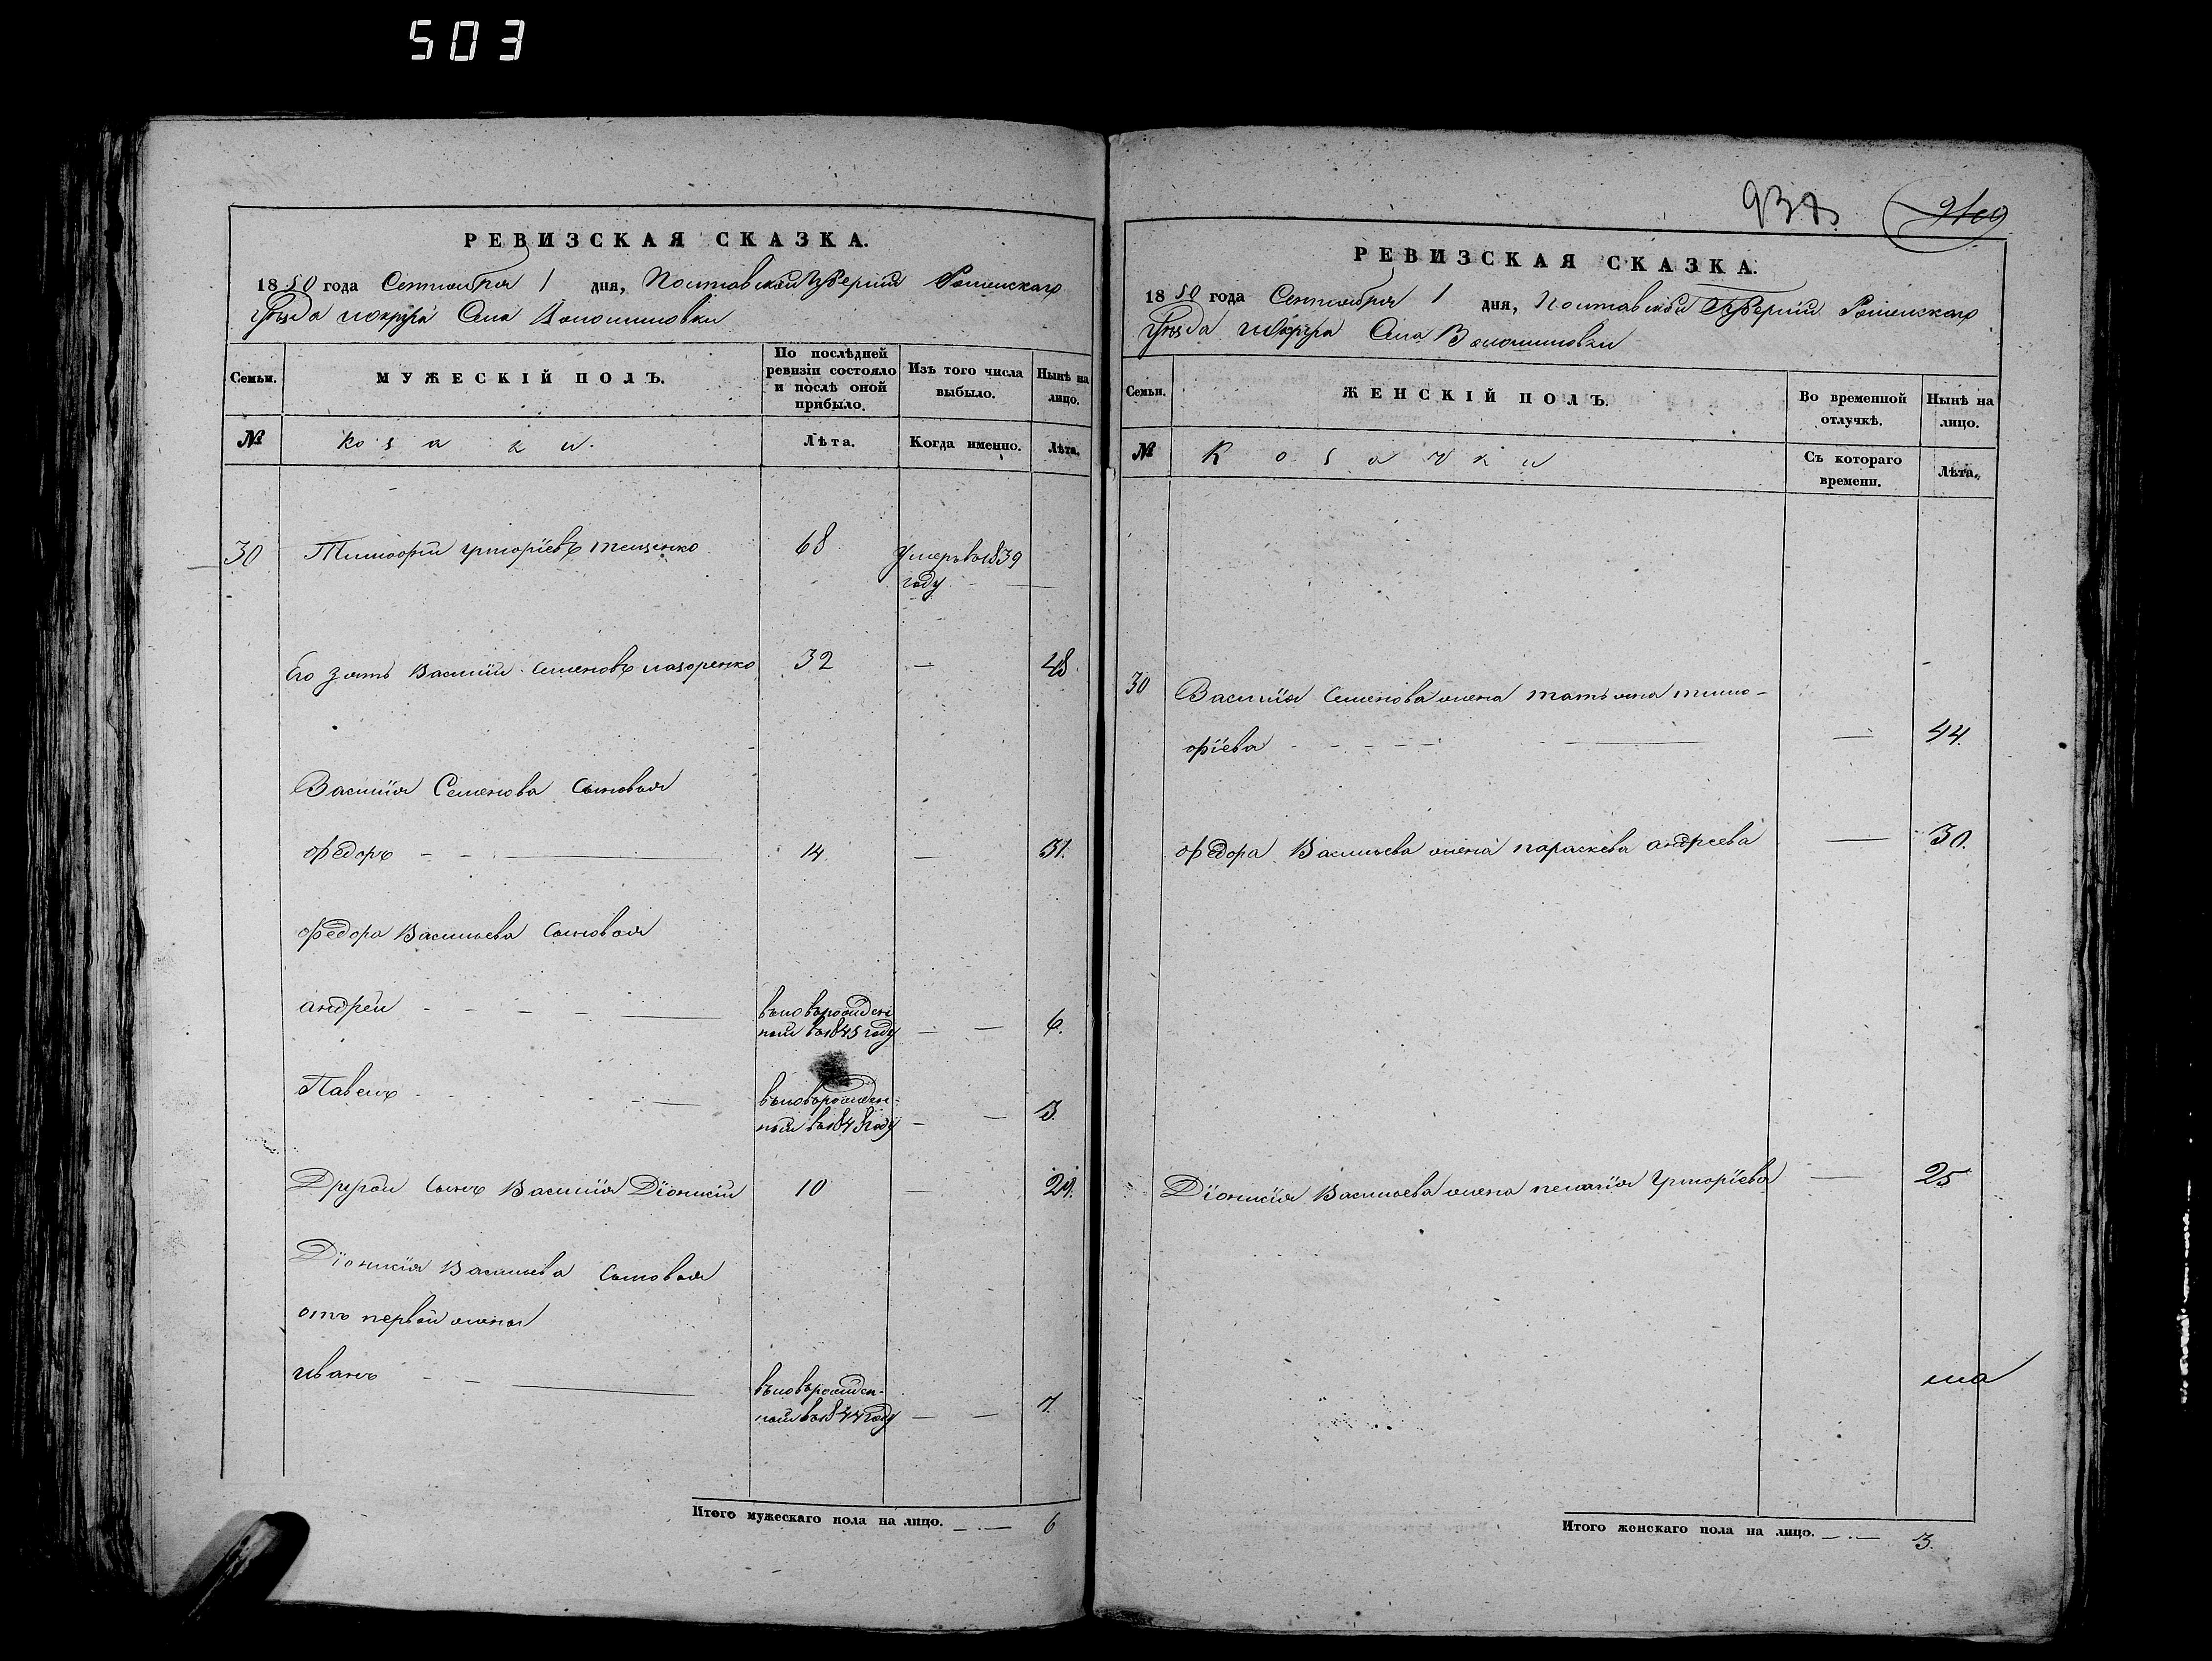 503
РЕВИЗСКАЯ СКАЗКА.
1850 года Сентября 1 дня, Полтавской Губерніи Роменскаго
Уѣзда и округа Села Волошиновки
Семьи.
МУЖЕСКІЙ ПОЛЪ.
По послѣдней ревизіи состояло и послѣ оной прибыло.
Изъ того числа выбыло.
Нынѣ на лицо.
№
Козаки.
Лѣта.
Когда именно.
Лѣта.
30 Тимофей Григоріевъ 68 Умеръ въ 1839
году
Его зять Василій Семеновъ Лазоренко 32 — 48.
Василія Семенова Сыновья
Федоръ 14 — 31.
Федора Васильева Сыновья
Андрей вновьрожден-
ный въ 1845 году — — 6.
Павелъ вновьрожден-
ный въ 1848 году — — 3.
Другой Сынъ Василія Діонисій 10 —
Діонисія Васильева Сыновья
отъ первой жены
Иванъ вновьрожден-
ный въ 1844 году — — 7.
Итого мужескаго пола на лицо. 6
РЕВИЗСКАЯ СКАЗКА.
1850 года Сентября 1 дня, Полтавской Губерніи Роменскаго
Уѣзда и округа Села Волошиновки
Семьи.
ЖЕНСКІЙ ПОЛЪ.
Во временной отлучкѣ.
Нынѣ на лицо.
№
Козачки
Съ котораго времени.
Лѣта.
30 Василія Семенова жена Татьяна Тимо-
фіева — 44.
Федора Васильева жена Параскева Андреева — 30.
Діонисія Васильева жена Пелагія Григоріева — 25
Итого женскаго пола на лицо. 3.